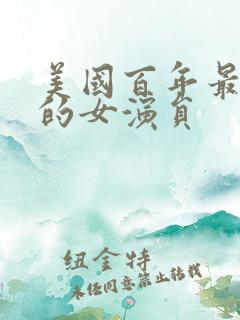 美國百年最
的女演員
纽金特
未经同意禁止转载